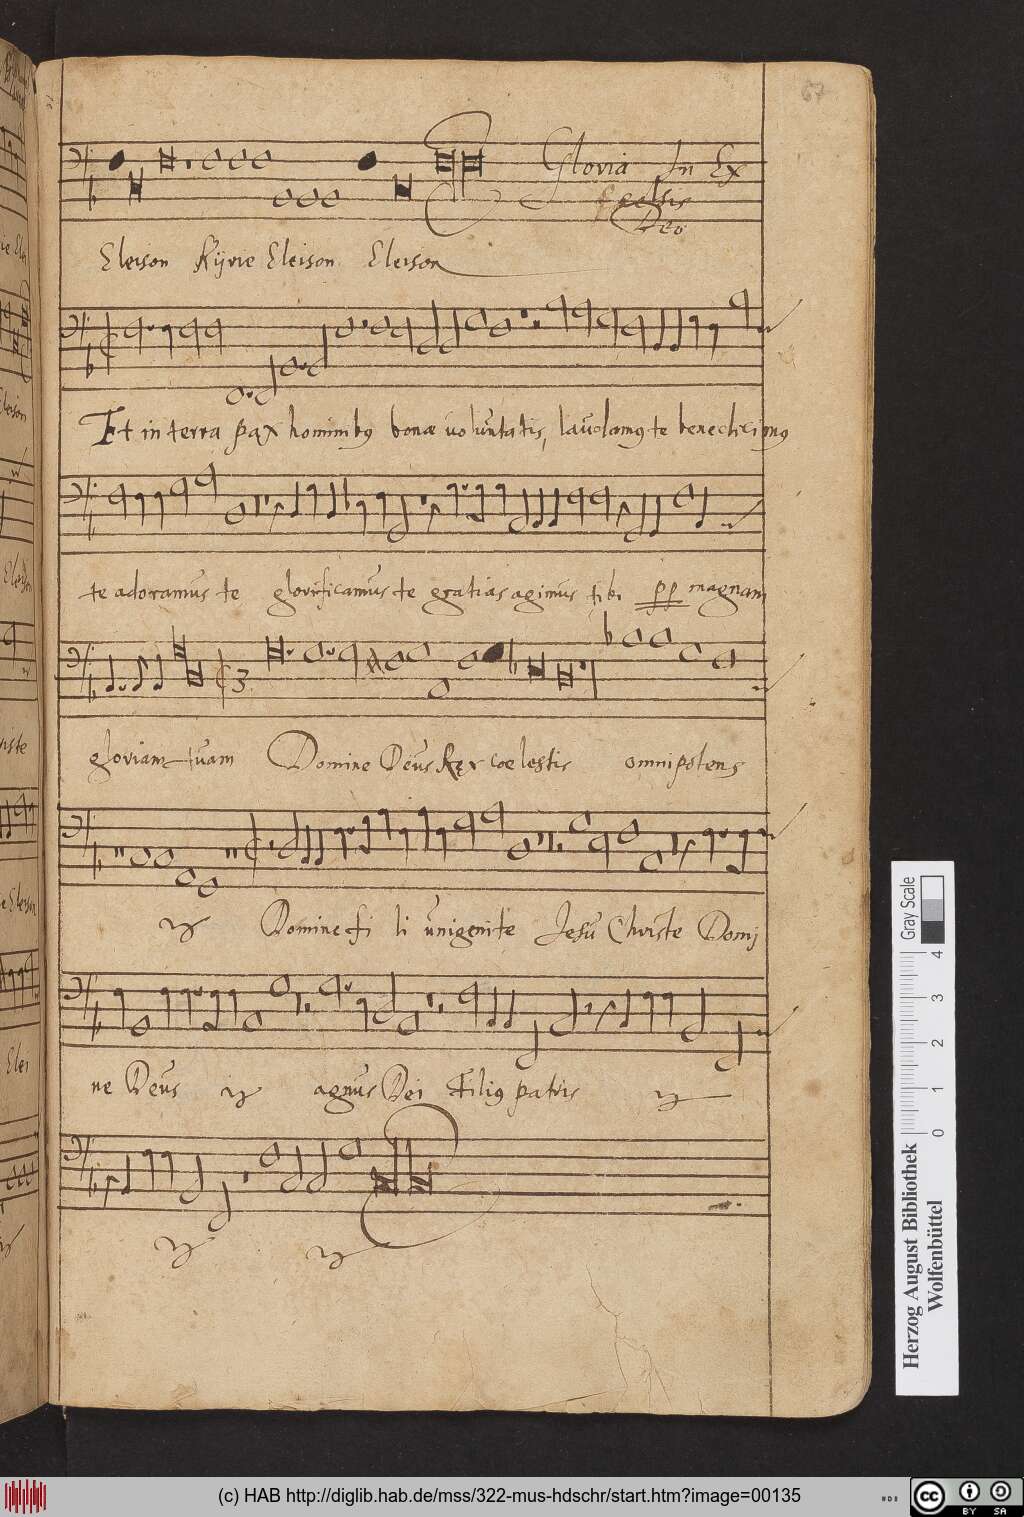 67
Gloria In Ex
celsis
Deo
Eleison Kyrie Eleison Eleison
Et in terra pax hominibus bonae voluntatis, laudamus te benedicimus
te adoramus te glorificamus te gratias agimus tibi pp magnam
gloriam tuam Domine Deus Rex coelestis omnipotens
Domine fi li unigenite Jesu Christe Domi
ne Deus agnus Dei Filius patris
Gray Scale
0 1 2 3 4
Herzog August Bibliothek
Wolfenbüttel
(c) HAB http://diglib.hab.de/mss/322-mus-hdschr/start.htm?image=00135
cc BY SA